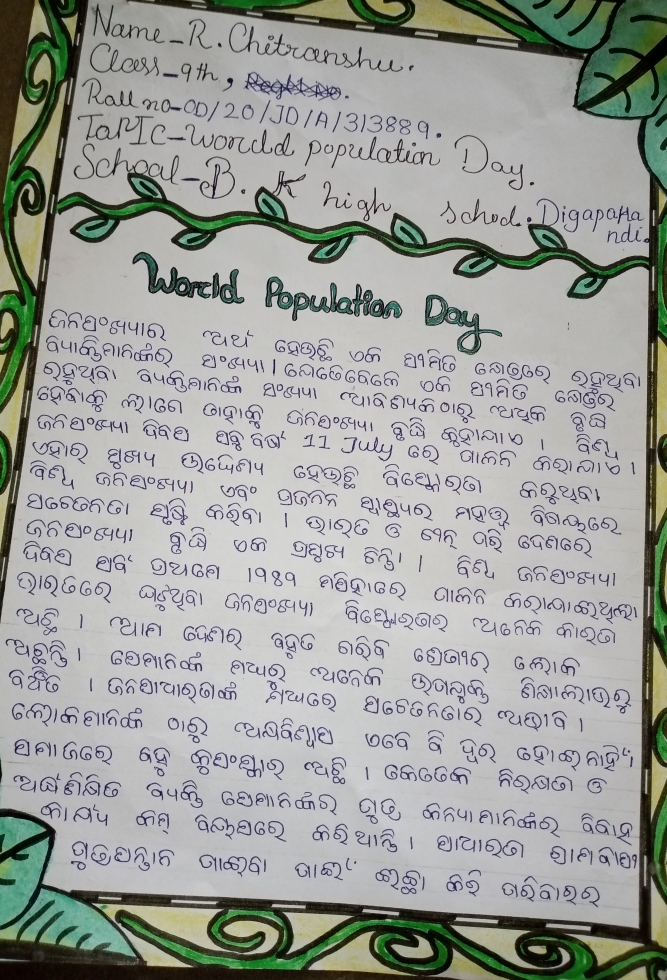 Name-R. Chitranshu.
Class-9th,
Roll no-OD/20/JD/A/313889.
TaPIc-Worcld population Day.
School-B. K high school. Digapaha
ndi.
Worcld Population Day
ଜନସଂଖ୍ୟାର ଅର୍ଥ ହେଉଛି ଏକ ସୀମିତ କ୍ଷେତ୍ରରେ ରହୁଥିବା
ବ୍ୟକ୍ତିମାନଙ୍କର ସଂଖ୍ୟା । ଯେତେବେଳେ ଏକ ସୀମିତ କ୍ଷେତ୍ରରେ
ରହୁଥିବା ବ୍ୟକ୍ତିମାନଙ୍କ ସଂଖ୍ୟା ଆବଶ୍ୟକ ଠାରୁ ଅଧିକ ବୃଦ୍ଧି
ହେବାକୁ ଲାଗେ ତାହାକୁ ଜନସଂଖ୍ୟା ବୃଦ୍ଧି କୁହାଯାଏ । ବିଶ୍ୱ
ଜନସଂଖ୍ୟା ଦିବସ ସବୁ ବର୍ଷ 11 July ରେ ପାଳନ କରାଯାଏ ।
ଏହାର ମୁଖ୍ୟ ଉଦ୍ଦେଶ୍ୟ ହେଉଛି ବିସ୍ଫୋରଣ କରୁଥିବା
ବିଶ୍ୱ ଜନସଂଖ୍ୟା ଏବଂ ପ୍ରଜନନ ସ୍ୱାସ୍ଥ୍ୟର ମହତ୍ତ୍ୱ ବିଷୟରେ
ସଚେତନତା ସୃଷ୍ଟି କରିବା । ଭାରତ ଓ ଚୀନ୍ ପରି ଦେଶରେ
ଜନସଂଖ୍ୟା ବୃଦ୍ଧି ଏକ ପ୍ରମୁଖ ଚିନ୍ତା । ବିଶ୍ୱ ଜନସଂଖ୍ୟା
ଦିବସ ସର୍ବ ପ୍ରଥମେ 1989 ମସିହାରେ ପାଳନ କରାଯାଇଥିଲା
ଭାରତରେ ଘଟୁଥିବା ଜନସଂଖ୍ୟା ବିସ୍ଫୋରଣର ଅନେକ କାରଣ
ଅଛି । ଆମ ଦେଶର ବହୁତ ଗରିବ ଶ୍ରେଣୀର ଲୋକ
ଅଛନ୍ତି । ସେମାନଙ୍କ ମଧ୍ୟରୁ ଅନେକ ଉପଯୁକ୍ତ ଶିକ୍ଷାଲାଭରୁ
ବଞ୍ଚିତ । ଜନସାଧାରଣଙ୍କ ମଧ୍ୟରେ ସଚେତନତାର ଅଭାବ ।
ଲୋକମାନଙ୍କ ଠାରୁ ଅନ୍ଧବିଶ୍ୱାସ ଏବେ ବି ଦୂର ହୋଇନାହିଁ ।
ସମାଜରେ ବହୁ କୁସଂସ୍କାର ଅଛି । କେତେକ ନିରକ୍ଷର ଓ
ଅର୍ଦ୍ଧଶିକ୍ଷିତ ବ୍ୟକ୍ତି ସେମାନଙ୍କର ପୁତ୍ର କନ୍ୟାମାନଙ୍କର ବିବାହ
କାର୍ଯ୍ୟ କମ୍ ବୟସରେ କରିଥାନ୍ତି । ସାଧାରଣ ଗ୍ରାମବାସୀ
ପୁତ୍ରସନ୍ତାନ ପାଇବା ପାଇଁ ଇଚ୍ଛା କରି ପରିବାରର